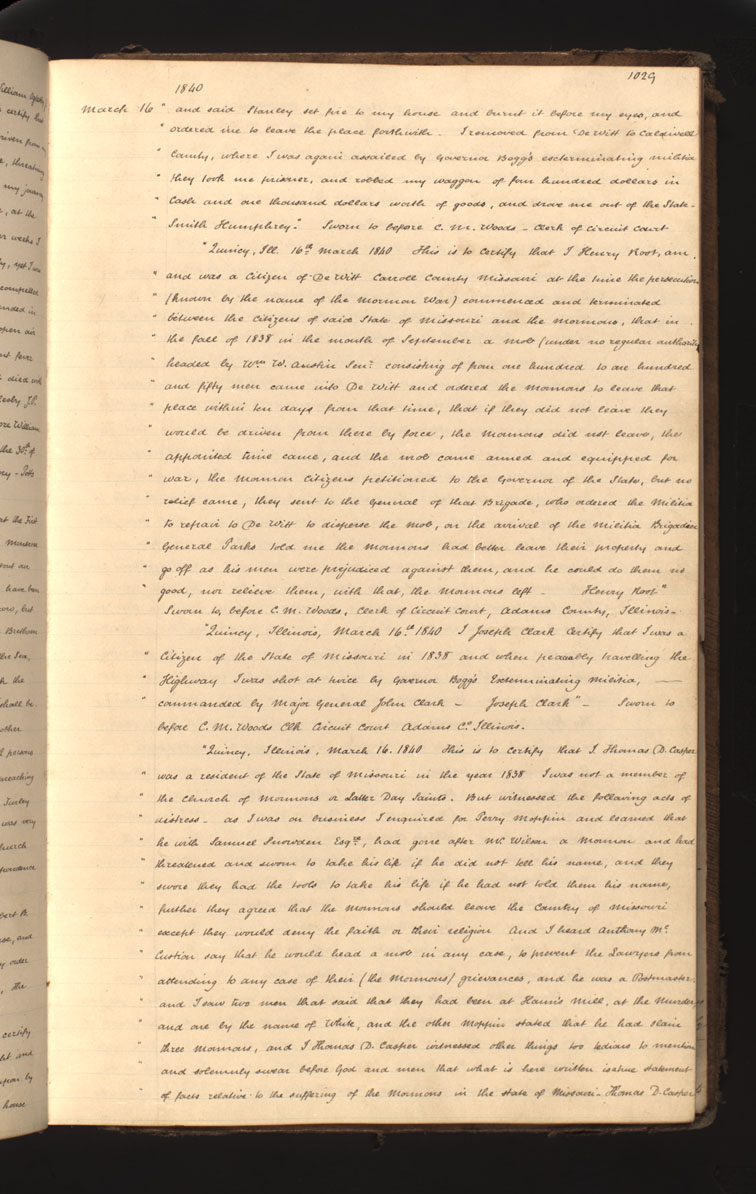 1029
1840
March 16 " and said Stanley set fire to my house and burnt it before my eyes, and
" ordered me to leave the place forthwith. I removed from De Witt to Caldwell
" County, where I was again assailed by Governor Boggs exterminating militia
" they took me prisoner, and robbed my waggon of four hundred dollars in
" Cash and one thousand dollars worth of goods, and drove me out of the State-
" Smith Humphrey." Sworn to before C. M. Woods - Clerk of Circuit Court
"Quincy, Ill. 16th March 1840 This is to certify that I Henry Root, am
" and was a Citizen of De Witt Carroll County Missouri at the time the persecution
" (known by the name of the Mormon War) commenced and terminated
" between the Citizens of said State of Missouri and the Mormons, that in
" the fall of 1838 in the month of September a mob (under no regular authority
" headed by Wm W. Austin Senr consisting of from one hundred to one hundred
" and fifty men came into De Witt and ordered the Mormons to leave that
" place within ten days from that time, that if they did not leave they
" would be driven from there by force, the Mormons did not leave, the
" appointed time came, and the mob came armed and equipped for
" war, the Mormon Citizens petitioned to the Governor of the State, but no
" relief came, they sent to the General of that Brigade, who ordered the Militia
" to repair to De Witt to disperse the mob, on the arrival of the Militia Brigadier
" General Parks told me the Mormons had better leave their property and
" go off as his men were prejudiced against them, and he could do them no
" good, nor relieve them, with that, the Mormons left - Henry Root"
Sworn to, before C. M. Woods, Clerk of Circuit Court, Adams County, Illinois-
"Quincy, Illinois, March 16th 1840 I Joseph Clark certify that I was a
" Citizen of the State of Missouri in 1838 and when peaceably travelling the
" Highway I was shot at twice by Governor Boggs Exterminating Militia,
" commanded by Major General John Clark - Joseph Clark" - Sworn to
before C. M. Woods Clk Circuit Court Adams Co Illinois.
"Quincy, Illinois, March 16. 1840 This is to certify that I. Thomas D. Casper
" was a resident of the State of Missouri in the year 1838 I was not a member of
" the Church of Mormons or Latter Day Saints. But witnessed the following acts of
" distress - as I was on business I enquired for Perry Moppin and learned that
" he with Samuel Snowden Esqre, had gone after Mr Wilson a Mormon and had
" threatened and sworn to take his life if he did not tell his name, and they
" swore they had the tools to take his life if he had not told them his name,
" further they agreed that the Mormons should leave the Country of Missouri
" except they would deny the faith or their religion And I heard Anthony Mc
" Custion say that he would head a mob in any case, to prevent the Lawyers from
" attending to any case of their (the Mormons) grievances, and he was a Postmaster,
" and I saw two men that said that they had been at Hauns Mill, at the Murder
" and one by the name of White, and the other Moppin stated that he had slain
" three Mormons, and I Thomas D. Casper witnessed other things too tedious to mention
" and solemnly swear before God and men that what is here written is true statement
" of facts relative to the suffering of the Mormons in the State of Missouri- Thomas D. Casper